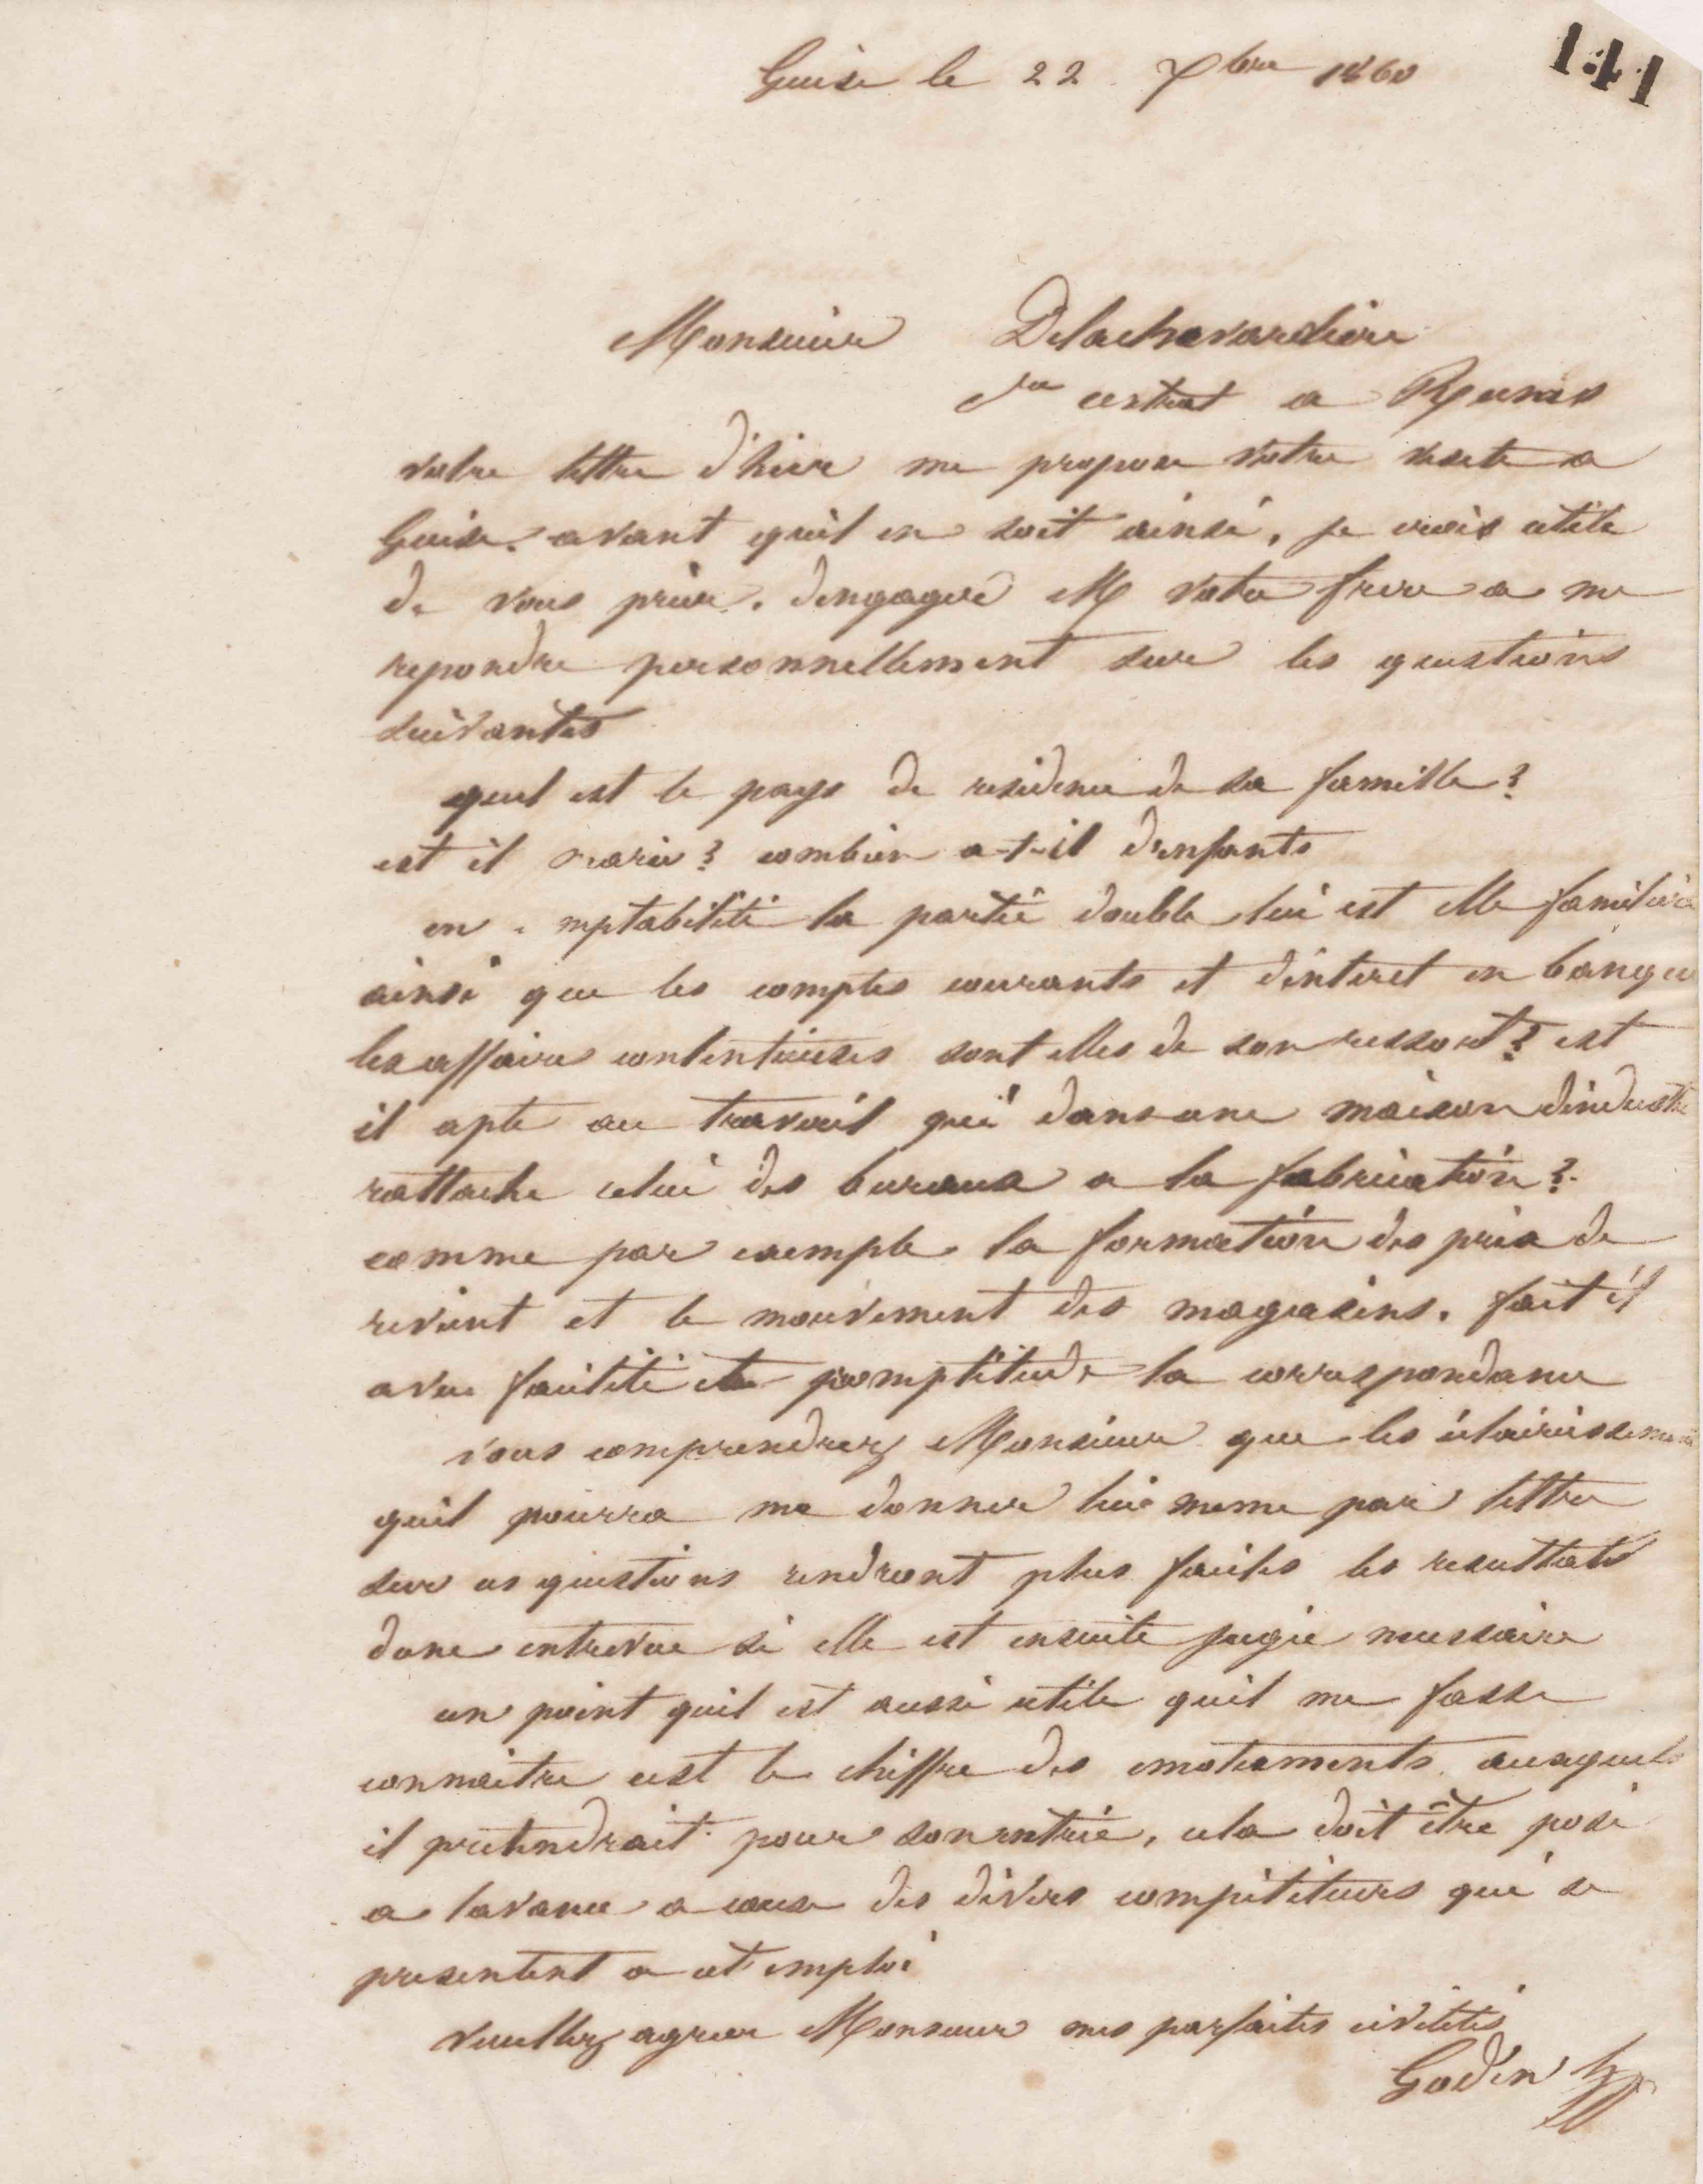 141
Guise le 22 Xbre 1860
Monsieur Delachavardière
a Reims
votre lettre d'hier me propose votre visite a
Guise. avant quil en soit ainsi, je crois utile
de vous prier. dengager M votre frere a me
repondre personnellement sur les questions
suivantes
quel est le pays de residence de sa famille?
est il marié? combien a-t-il denfants
en mptabilité la partie double lui est elle familière
ainsi que les comptes courants et dinteret en banque
les affaires contentieuses sont elles de son ressort? est
il apte au travail qui dans une maison dindustrie
rattache celui des bureaux a la fabrication?
comme par exemple la formation des prix de
revient et le mouvement des magasins. fait il
avec facilité et promptitude la correspondance
vous comprendrez Monsieur que les éclaircissements
quil pourra me donner lui meme par lettre
sur ces questions rendront plus faciles les resultats
dune entrevue si elle est ensuite jugée necessaire
un point quil est aussi utile quil me fasse
connaitre cest le chiffre des emoluments auxquels
il pretendrait pour son entrée, cela doit être posé
a lavance a cause des divers compétiteurs qui se
presentent a cet emploi
veuillez agreer Monsieur mes parfaites civilités
Godin